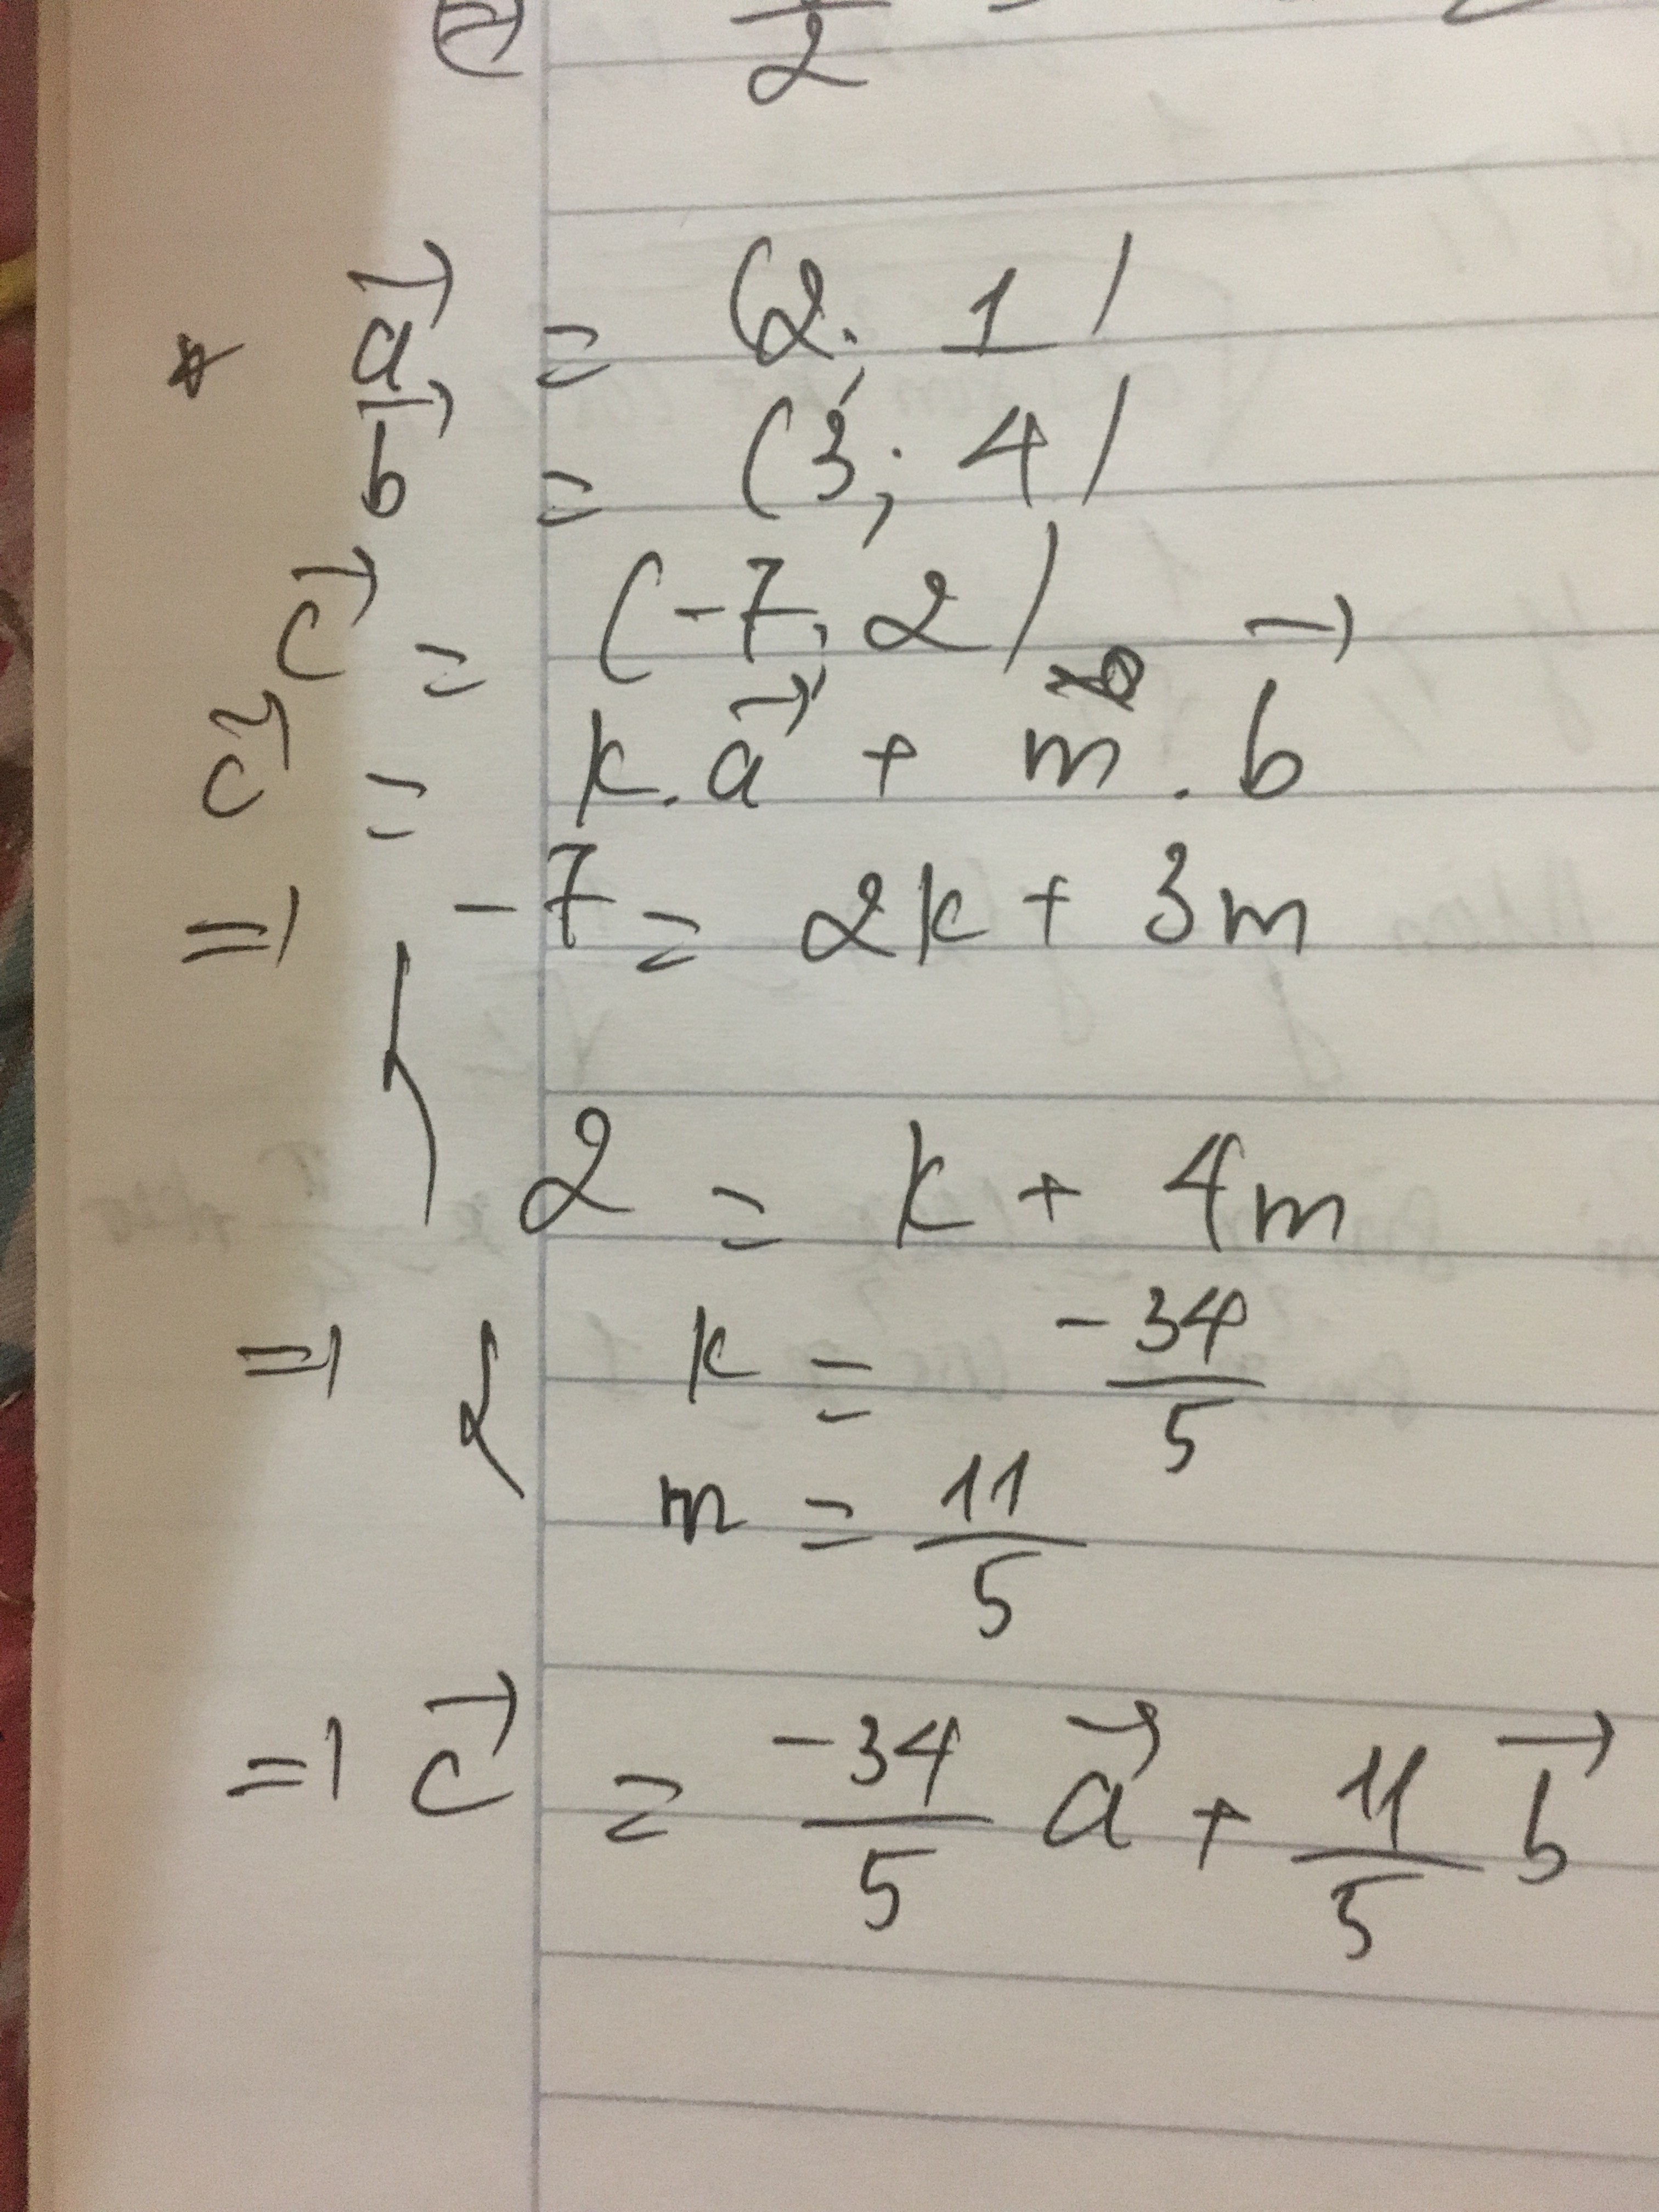 2
* a⃗ = (2; 1)
b⃗ = (3; 4)
c⃗ = (-7; 2)
c⃗ = k.a⃗ + m.b⃗
=> { -7 = 2k + 3m
2 = k + 4m
=> { k = -34/5
m = 11/5
=> c⃗ = -34/5 a⃗ + 11/5 b⃗